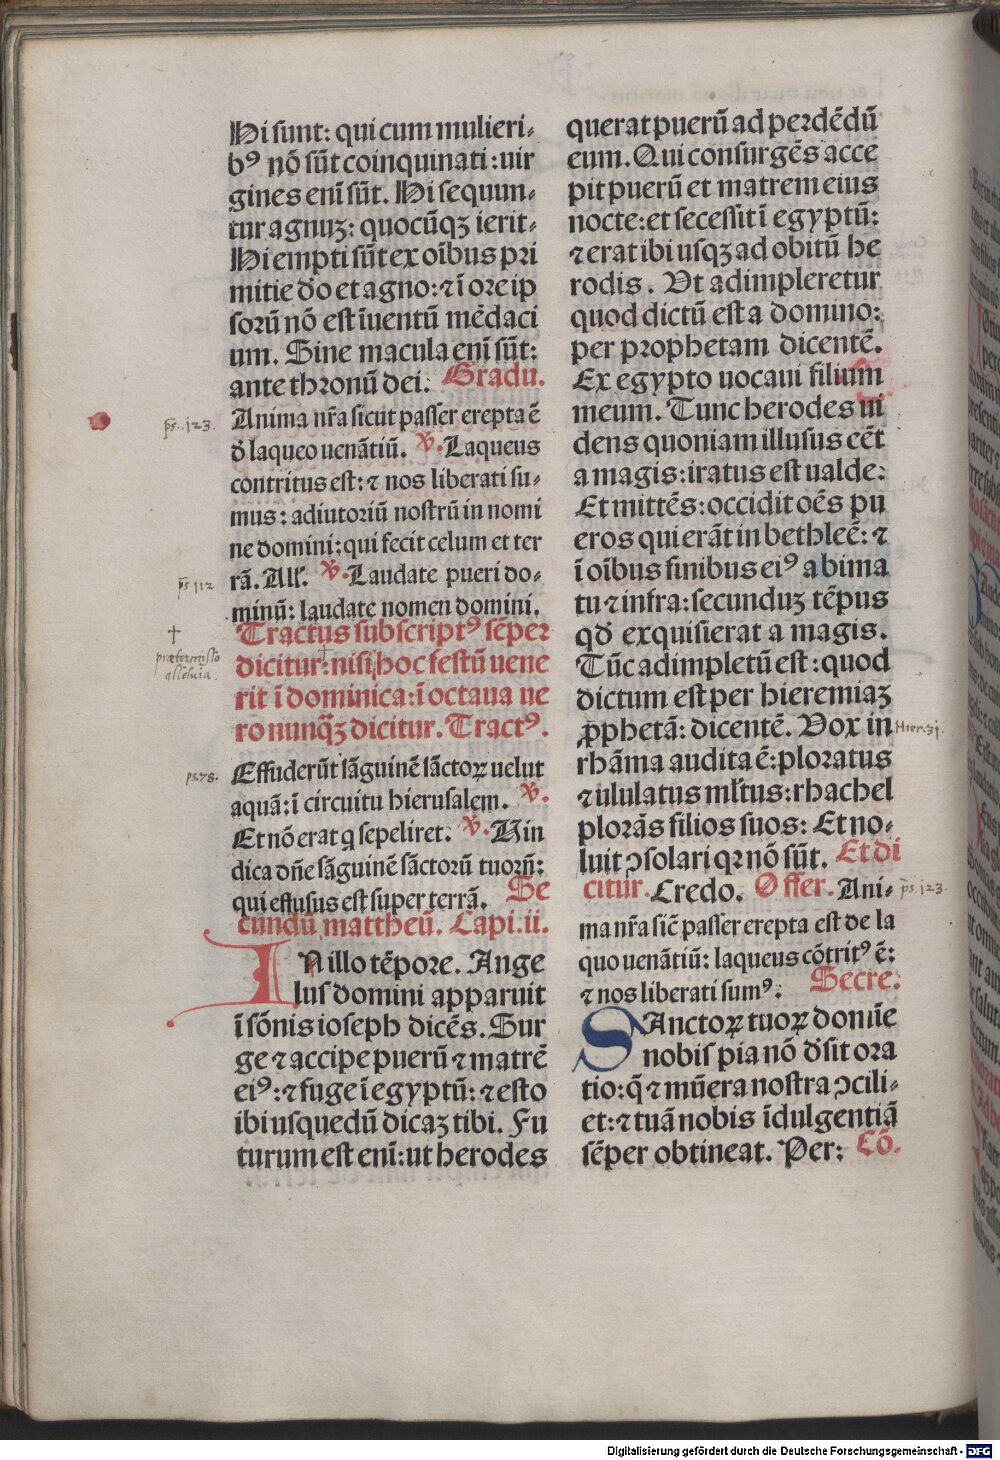 Hi sunt: qui cum mulieri-
bꝰ nō sūt coinquinati: uir
gines enī sūt. Hi sequun-
tur agnuꝫ: quocūqꝫ ierit-
Hi empti sūt ex oībus pri
mitie do et agno: ⁊ ī ore ip
sorū nō est īuentū mēdaci
um. Sine macula enī sūt:
ante thronū dei. Gradu.
Anima nr̄a sicut passer erepta ē
d̄ laqueo uenātiū. ℣. Laqueus
contritus est: ⁊ nos liberati su-
mus: adiutoriū nostrū in nomi
ne domini: qui fecit celum et ter
rā. All'. ℣. Laudate pueri do-
minū: laudate nomen domini.
Tractus subscriptꝰ sēper
dicitur: nisi hoc festū uene
rit ī dominica: ī octaua ue
ro nunqꝫ dicitur. Tractꝰ.
Effuderūt sāguinē sāctoꝝ uelut
aquā: ī circuitu hierusalem. ℣.
Et nō erat q sepeliret. ℣. Uin
dica dn̄e sāguinē sāctorū tuorū:
qui effusus est super terrā. Se
cundū mattheū. Capi. ii.
In illo tēpore. Ange
lus domini apparuit
ī sōnis ioseph dicēs. Sur
ge ⁊ accipe puerū ⁊ matrē
eiꝰ: ⁊ fuge ī egyptū: ⁊ esto
ibi usquedū dicaꝫ tibi. Fu
turum est enī: ut herodes
querat puerū ad perdēdū
eum. Qui consurgēs acce
pit puerū et matrem eius
nocte: et secessit ī egyptū:
⁊ erat ibi usqꝫ ad obitū he
rodis. Ut adimpleretur
quod dictū est a domino:
per prophetam dicentē.
Ex egypto uocaui filium
meum. Tunc herodes ui
dens quoniam illusus eēt
a magis: iratus est ualde:
Et mittēs: occidit oēs pu
eros qui erāt in bethleē: ⁊
ī oībus finibus eiꝰ a bima
tu ⁊ infra: secunduꝫ tēpus
qd̄ exquisierat a magis.
Tūc adimpletū est: quod
dictum est per hieremiaꝫ
ꝓphetā: dicentē. Vox in
rhāma audita ē: ploratus
⁊ ululatus ml̄tus: rhachel
plorās filios suos: Et no-
luit ↄsolari qꝛ nō sūt. Et di
citur. Credo. Offer. Ani-
ma nr̄a sic̄ passer erepta est de la
quo uenātiū: laqueus cōtritꝰ ē:
⁊ nos liberati sumꝰ. Secre.
Sanctoꝝ tuoꝝ domīe
nobis pia nō d̄sit ora
tio: q̄ ⁊ mūera nostra ↄcili-
et: ⁊ tuā nobis īdulgentiā
sēper obtineat. Per: Cō.
ps. 123.
ps 112
†
prætermisso
alleluia.
ps. 78.
Hier. 31.
ps. 123.
Digitalisierung gefördert durch die Deutsche Forschungsgemeinschaft - DFG